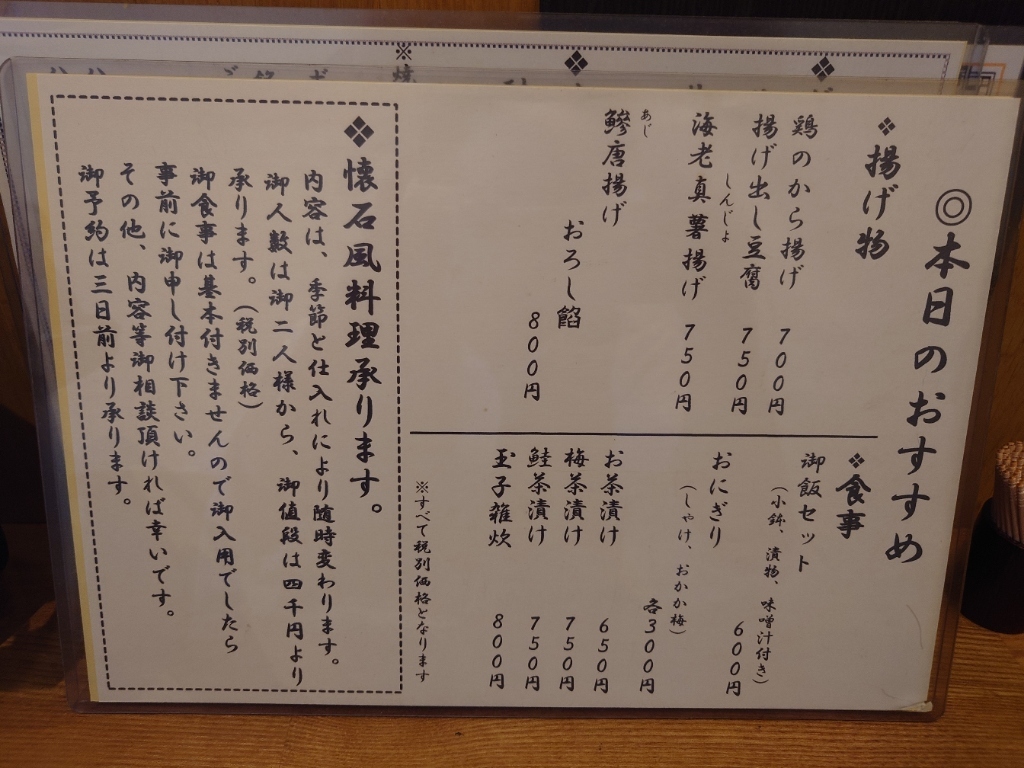 ◎本日のおすすめ
❖揚げ物
鶏のから揚げ 700円
揚げ出し豆腐 750円
しんじょ
海老真薯揚げ 750円
あじ
鰺唐揚げ
おろし餡
800円
❖食事
御飯セット
(小鉢、漬物、味噌汁付き)
600円
おにぎり
(しゃけ、おかか梅)
各300円
お茶漬け 650円
梅茶漬け 750円
鮭茶漬け 750円
玉子雑炊 800円
※すべて税別価格となります
❖懐石風料理承ります。
内容は、季節と仕入れにより随時変わります。
御人数は御二人様から、御値段は四千円より
承ります。(税別価格)
御食事は基本付きませんので御入用でしたら
事前に御申し付け下さい。
その他、内容等御相談頂ければ幸いです。
御予約は三日前より承ります。